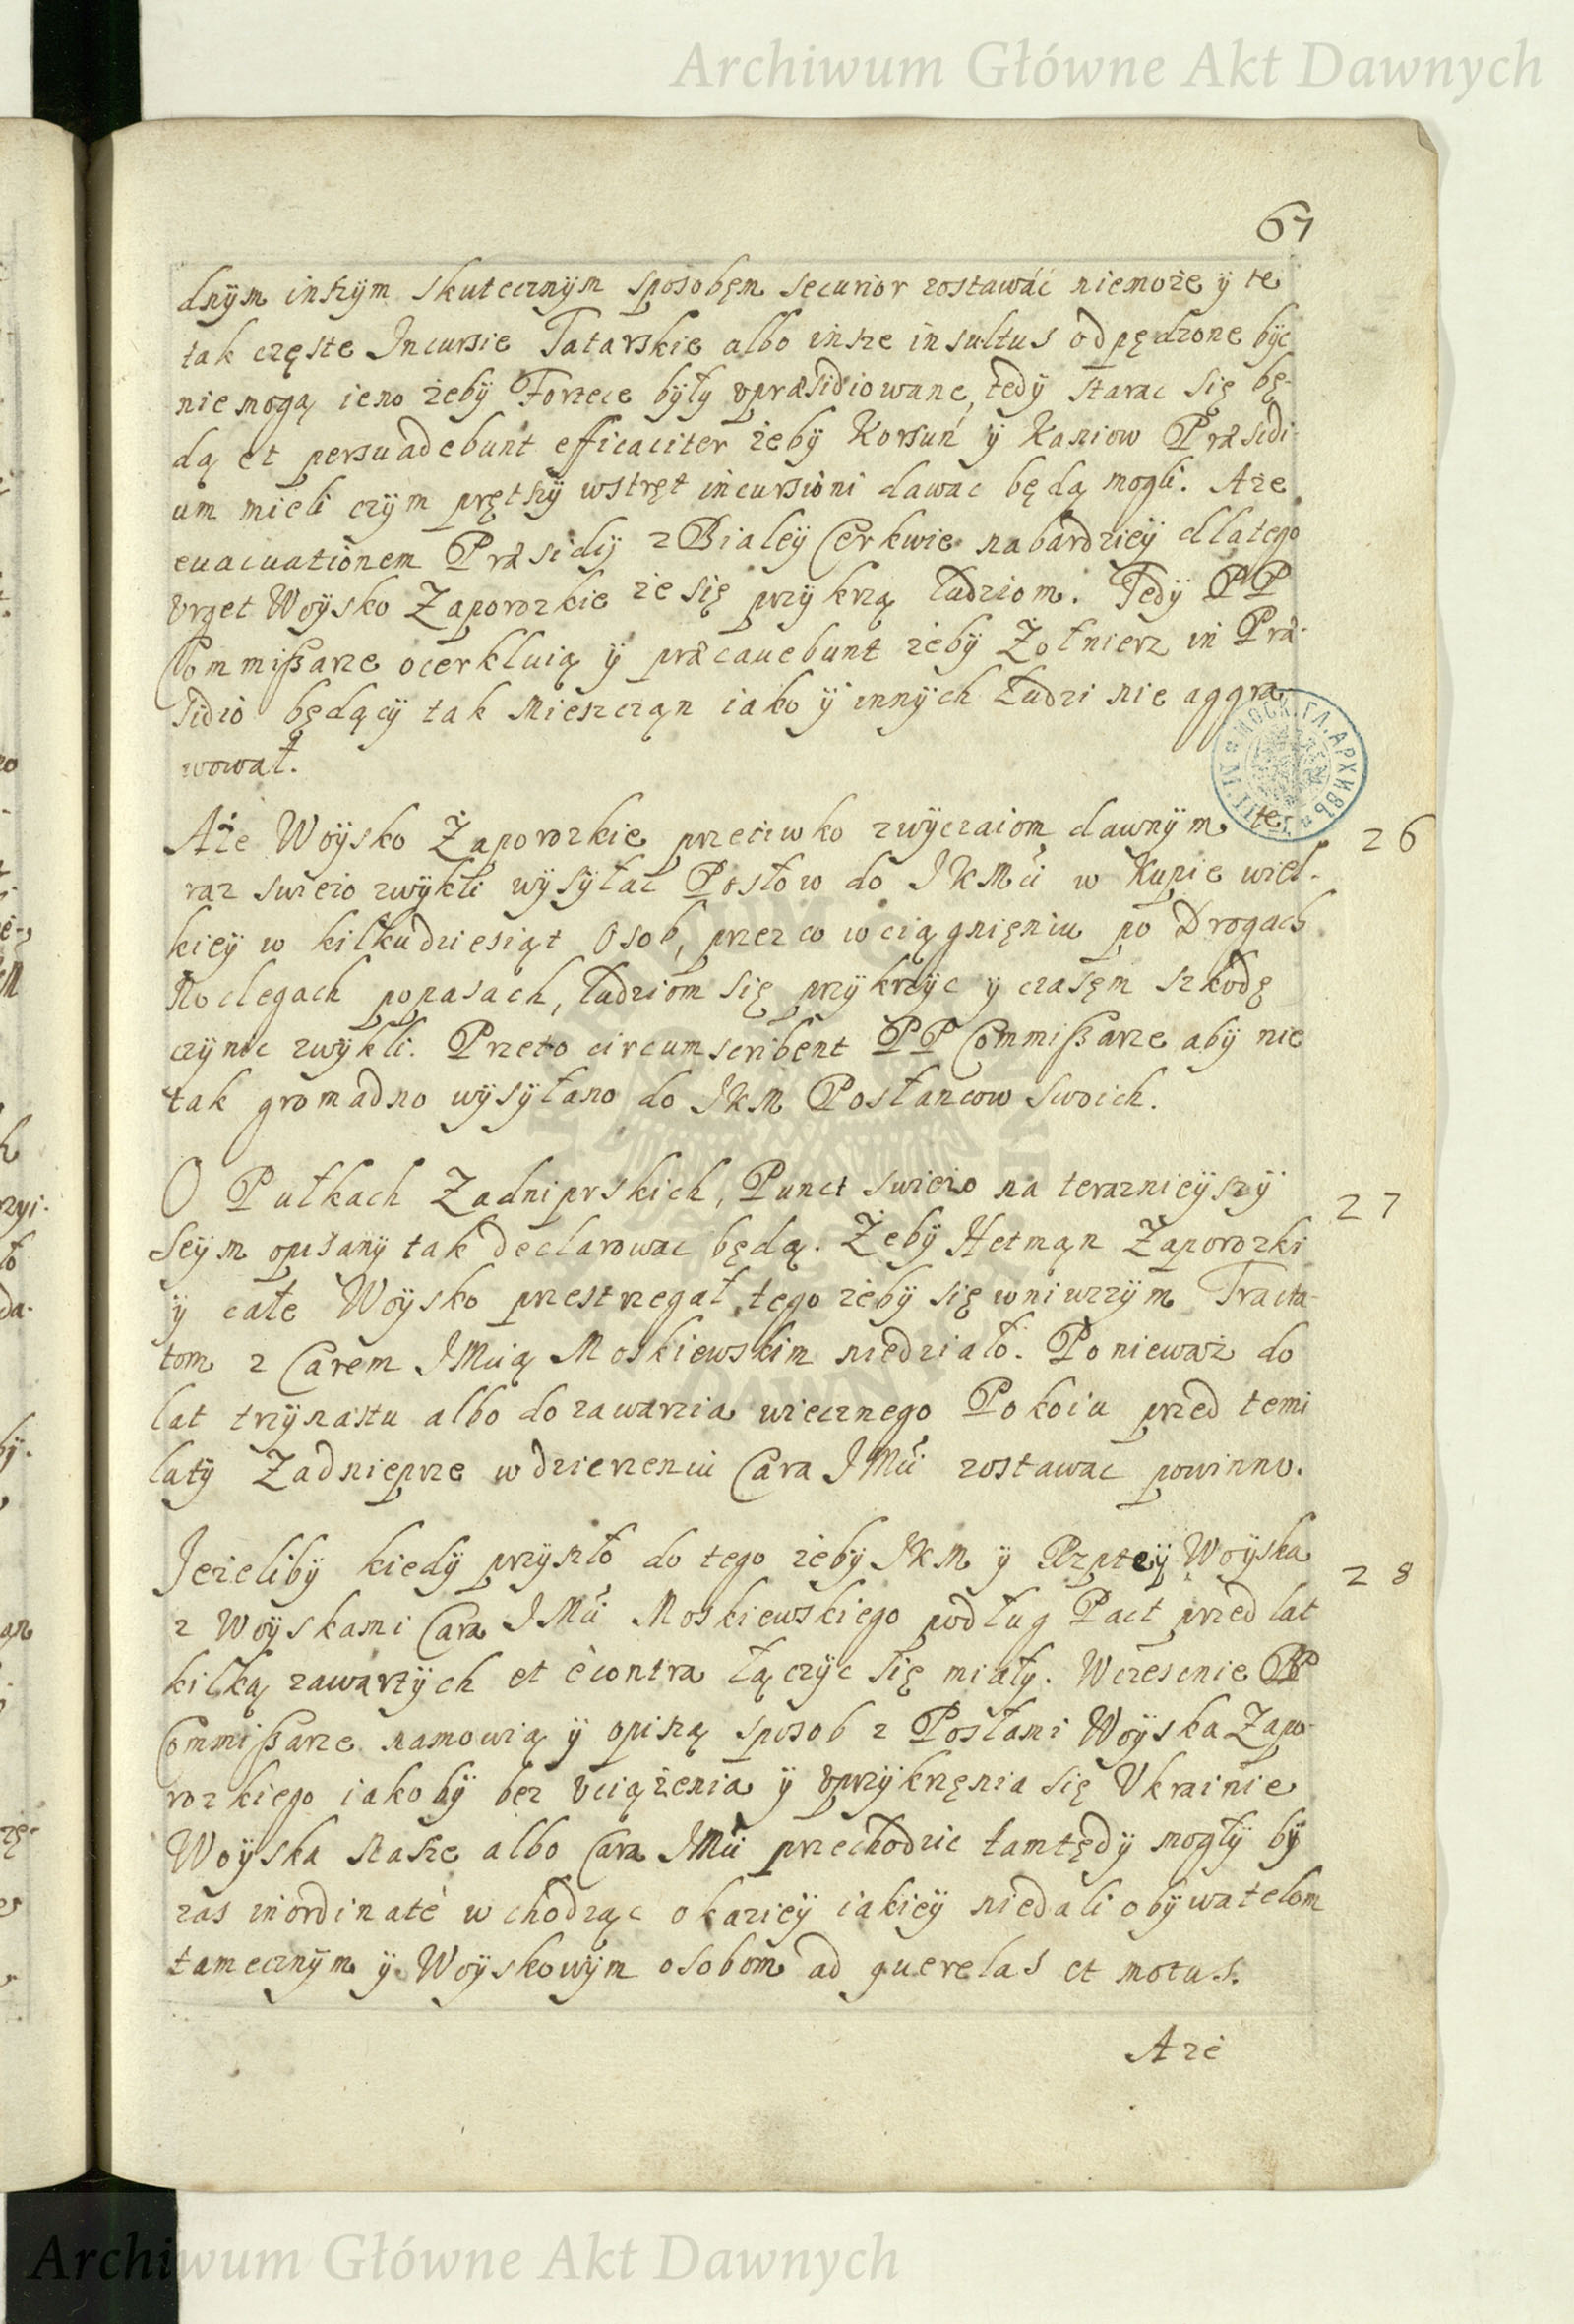 Archiwum Główne Akt Dawnych
67
dnÿm inszÿm skutecznÿm sposobęm securior zostawáć niemoże ÿ te
tak częste Incursie Tatarskie albo insze insultus odpędzone bÿc
nie mogą ieno żebÿ Fortece bÿłÿ vpræsidiowane, tedÿ starac się bę-
dą et persuadebunt efficaciter żebÿ Korsuń ÿ Kaniow Præsidi-
um mieli czÿm prętszÿ wstręt incursioni dawac będą mogli. Aże
euacuationem Præsidÿ z Białeÿ Cerkwie nabardzieÿ dlatego
Vrget Woÿsko Zaporozkie że się przÿkrzą ludziom. Tedÿ PP
Commissarze ocerkluią ÿ præcauebunt żebÿ Żołnierz in Præ-
sidio będącÿ tak Mieszcząn iako ÿ innÿch Ludzi nie aggra
wował.
Aże Woÿsko Zaporozkie przeciwko zwÿczaiom dawnÿm te 26
raz swieżo zwÿkli wÿsÿłac Posłow do JKMci w Kupie wiel-
kieÿ w kilkudziesiąt Osob, przez co w ciągnięniu po Drogach
Noclegach popasach, ludziom się przÿkrzÿc ÿ czasęm szkodę
czÿnic zwÿkli. Przeto circumscribent PP Commissarze abÿ nie
tak gromadno wÿsÿłano do JKM Posłancow swoich.
O Pułkach Zadniprskich, Punct swieżo na teraznieÿszÿ 27
Seÿm opisanÿ tak declarowac będą. Żebÿ Hetmąn Zaporozki
ÿ całe Woÿsko przestrzegał tego żebÿ się wniwczÿm Tracta-
tom z Carem JMcią Moskiewskim niedziało. Ponieważ do
lat trzÿnastu albo do zawarzia wiecznego Pokoiu przed temi
latÿ Zadnieprze w dzierzeniu Cara JMci zostawac powinno.
Jeżelibÿ kiedÿ przÿszło do tego żebÿ JKM ÿ Rzpteÿ Woÿska 28
z Woÿskami Cara JMci Moskiewskiego podług Pact przed lat
kilką zawartÿch et ècontra łączÿc się miałÿ. Wczesnie PP
Commissarze namowią ÿ opiszą sposob z Posłami Woÿska Zapo-
rozkiego iakobÿ bez vciążenia ÿ vprzÿkrzęnia się Vkrainie
Woÿska Nasze albo Cara JMci przechodzic tamtędÿ mogłÿ bÿ
zas inordinatè wchodząc okazieÿ iakieÿ niedali obÿwatelom
tamecznÿm ÿ Woÿskowÿm osobom ad querelas et motus.
Aże
Archiwum Główne Akt Dawnych